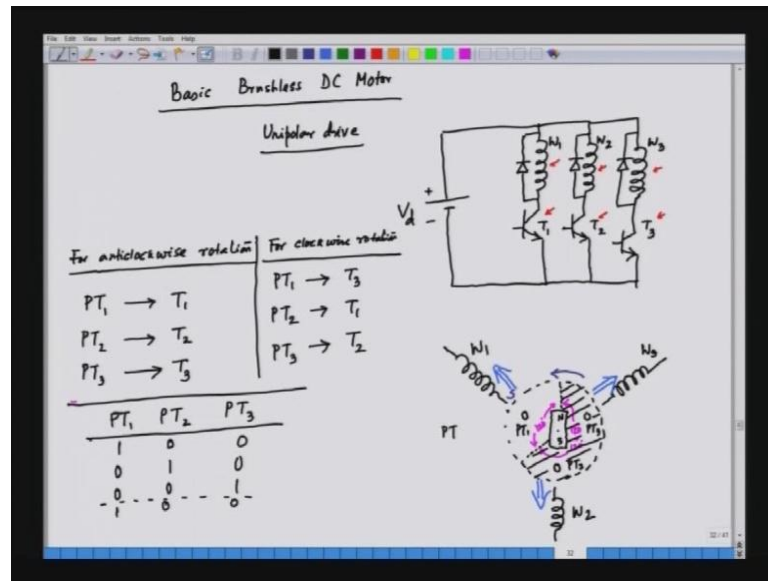 File Edit View Insert Actions Tools Help
Basic Brushless DC Motor
Unipolar drive
For anticlockwise rotation
PT1 → T1
PT2 → T2
PT3 → T3
For clockwise rotation
PT1 → T3
PT2 → T1
PT3 → T2
PT1 PT2 PT3
1 0 0
0 1 0
0 0 1
1 0 0
W1 W2 W3
+
Vd
-
T1 T2 T3
W1
W3
PT
0 0
PT1 N PT3
S
0 PT2
W2
32/41
32